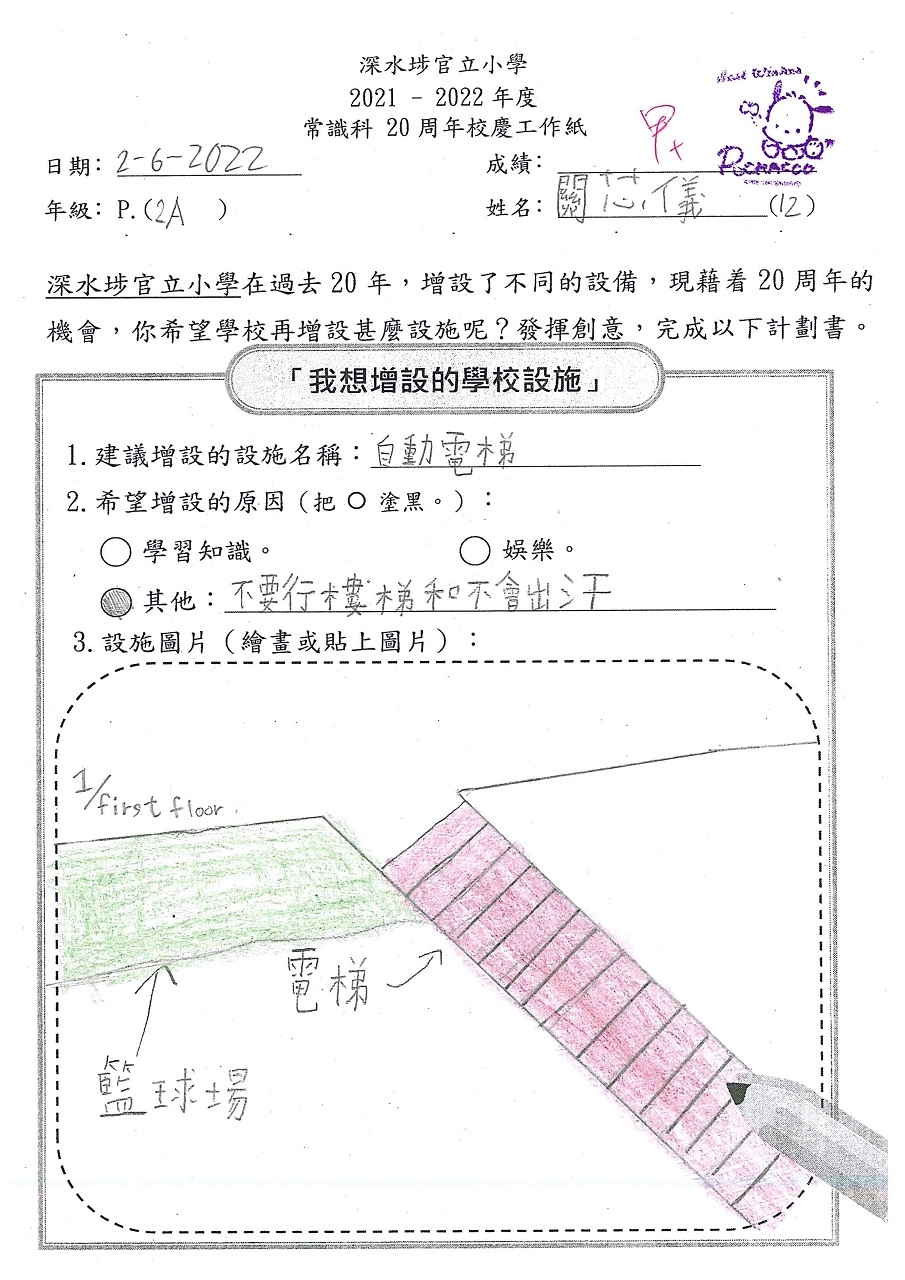 深水埗官立小學
2021 - 2022 年度
常識科 20 周年校慶工作紙
Best Wishes
POCHACCO
日期: 2-6-2022
成績: 甲+
年級: P.(2A )
姓名: 關芯儀 (12)
深水埗官立小學在過去 20 年，增設了不同的設備，現藉着 20 周年的
機會，你希望學校再增設甚麼設施呢？發揮創意，完成以下計劃書。
「我想增設的學校設施」
1. 建議增設的設施名稱：自動電梯
2. 希望增設的原因（把 ○ 塗黑。）：
○ 學習知識。
○ 娛樂。
其他：不要行樓梯和不會出汗
3. 設施圖片（繪畫或貼上圖片）：
1/first floor
電梯
籃球場